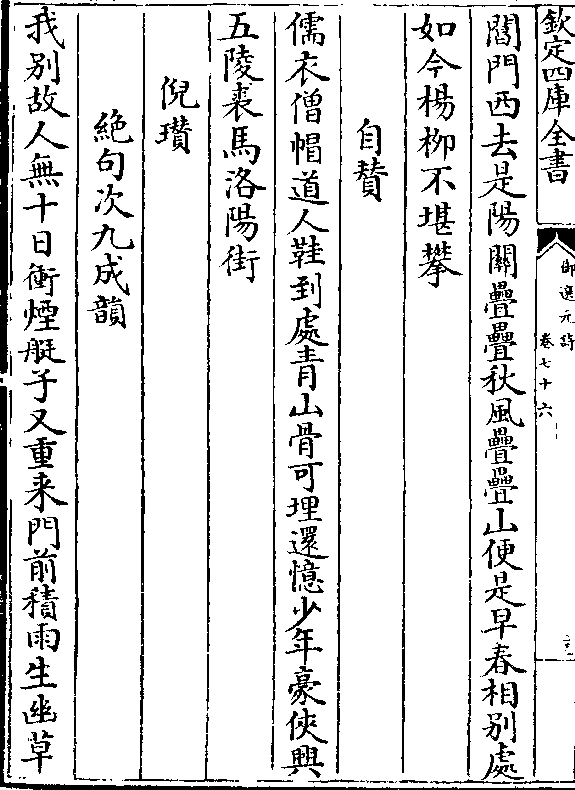 欽定四庫全書
御選元詩
卷七十六
閶門西去是陽關疊疊秋風疊疊山便是早春相別處
如今楊柳不堪攀
自贊
儒衣僧帽道人鞋到處青山骨可埋還憶少年豪俠興
五陵裘馬洛陽街
倪瓚
絶句次九成韻
我別故人無十日衝煙艇子又重来門前積雨生幽草